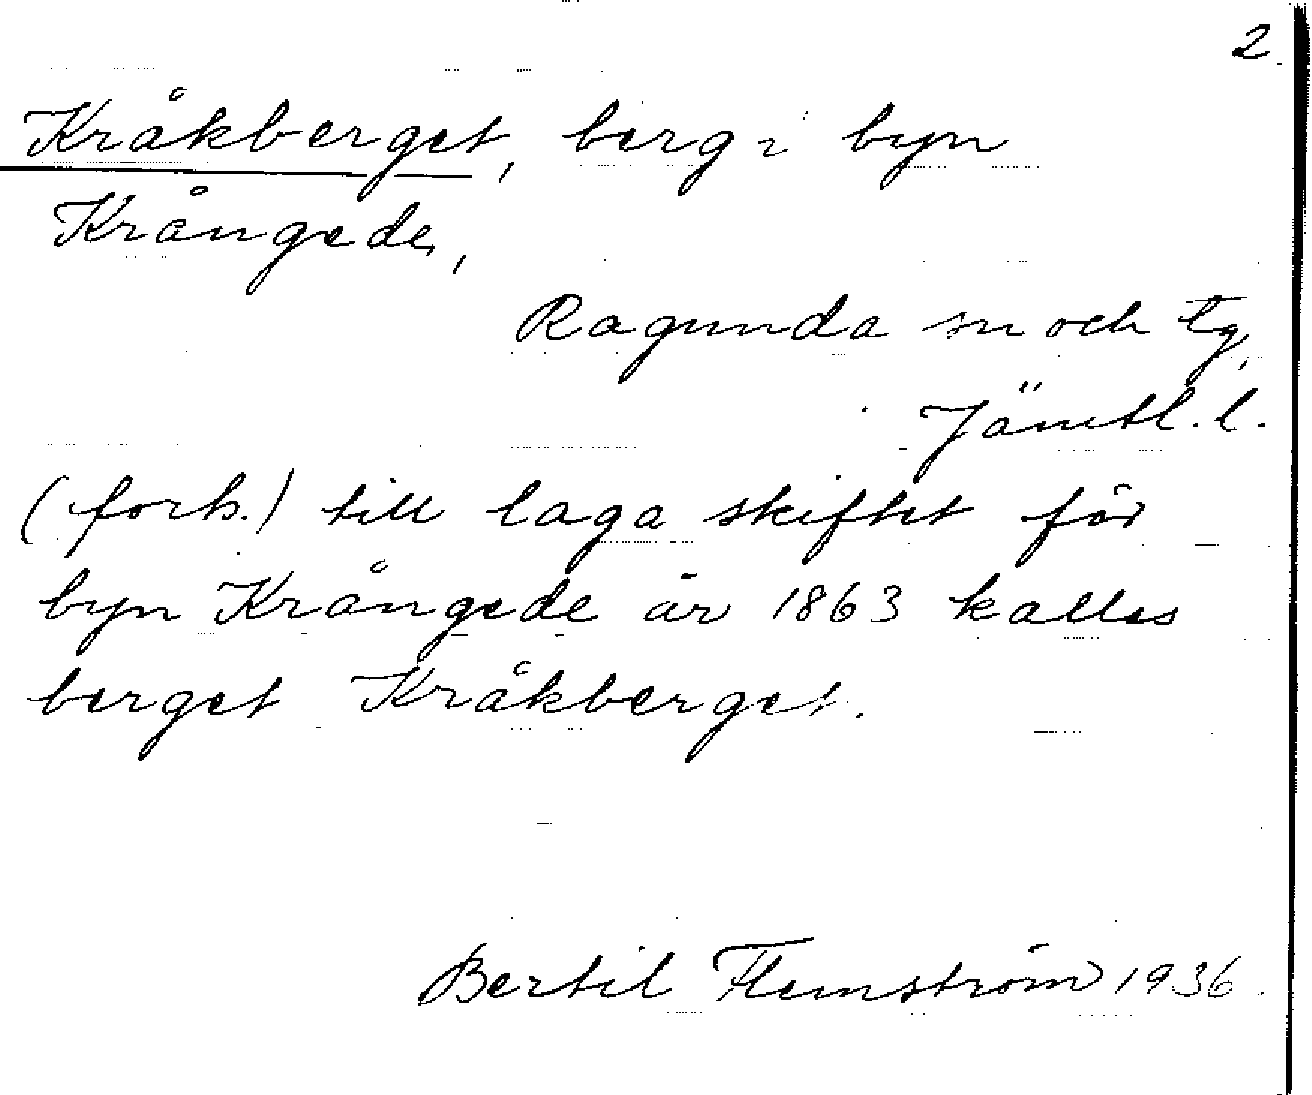 2.
Kråkberget, berg i byn
Krångede,
Ragunda sn och tg,
Jämtl. l.
(forts.) till laga skiftet för
byn Krångede år 1863 kalles
berget Kråkberget.
Bertil Flemström 1936.